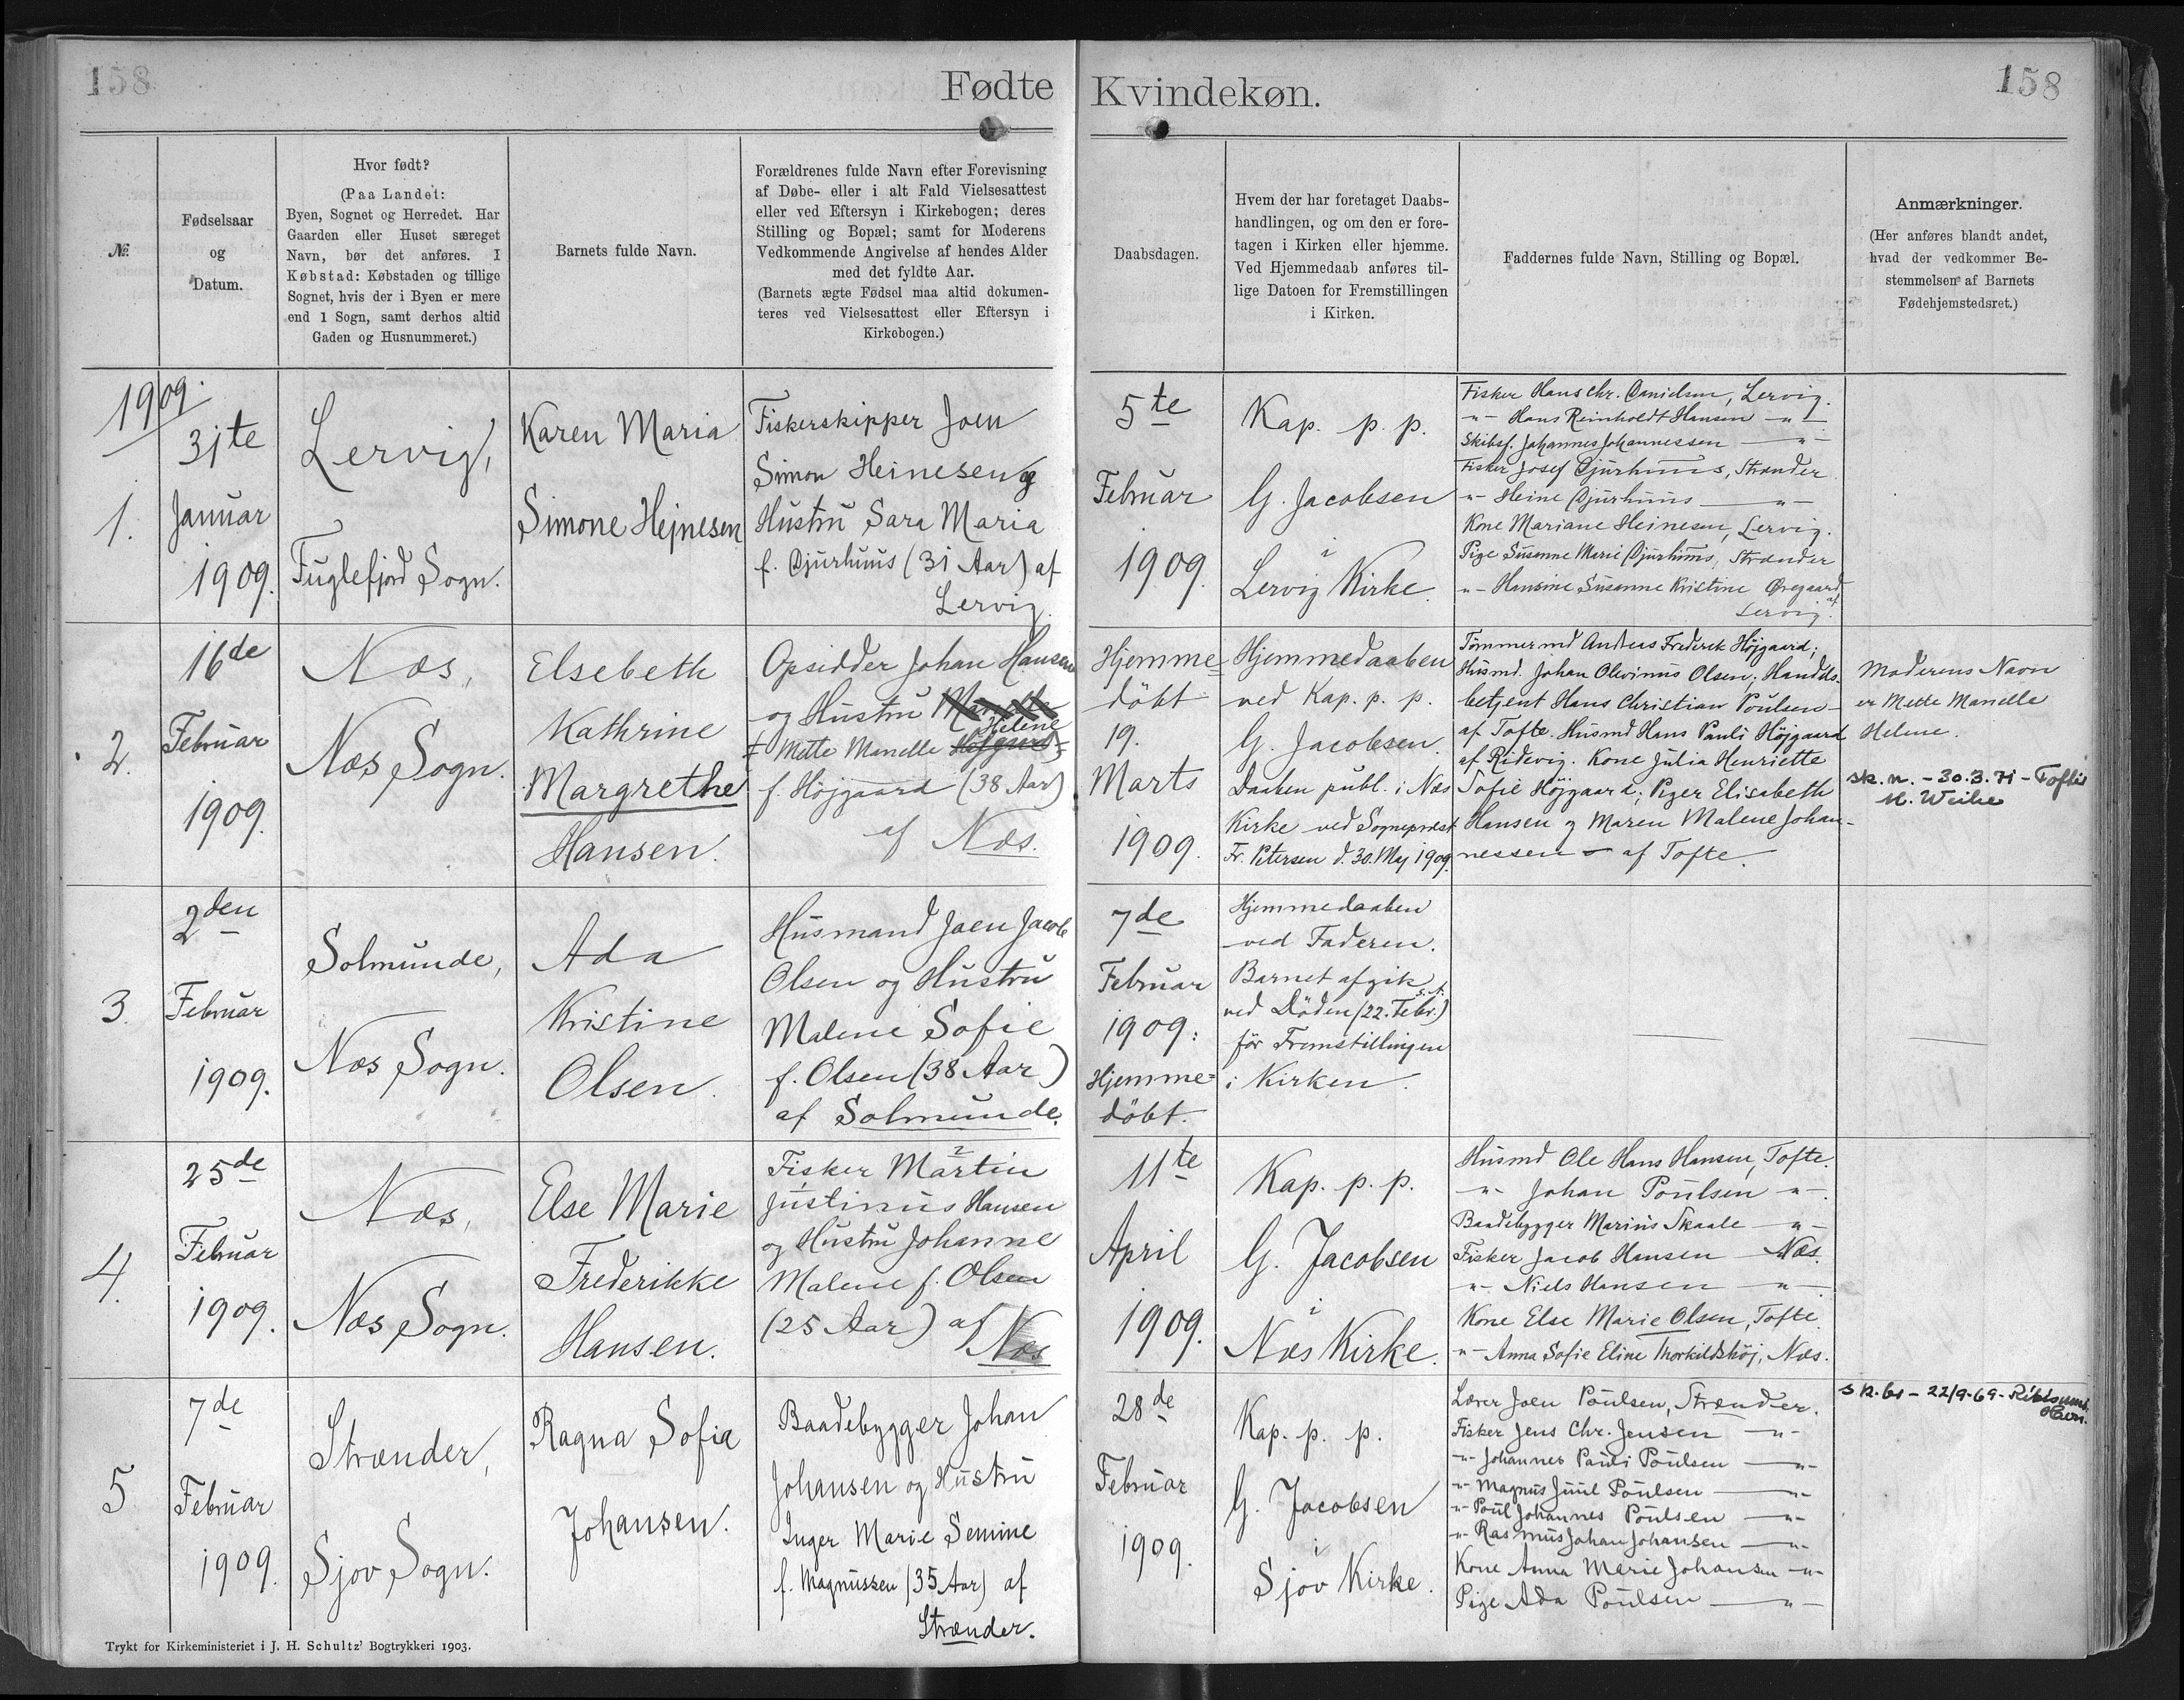 158
Fødte Kvindekøn.
158
№
Fødselsaar
og
Datum.
Hvor født?
(Paa Landet:
Byen, Sognet og Herredet. Har
Gaarden eller Huset særeget
Navn, bør det anføres. I
Købstad: Købstaden og tillige
Sognet, hvis der i Byen er mere
end 1 Sogn, samt derhos altid
Gaden og Husnummeret.)
Barnets fulde Navn.
Forældrenes fulde Navn efter Forevisning
af Døbe- eller i alt Fald Vielsesattest
eller ved Eftersyn i Kirkebogen; deres
Stilling og Bopæl; samt for Moderens
Vedkommende Angivelse af hendes Alder
med det fyldte Aar.
(Barnets ægte Fødsel maa altid dokumen-
teres ved Vielsesattest eller Eftersyn i
Kirkebogen.)
Daabsdagen.
Hvem der har foretaget Daabs-
handlingen, og om den er fore-
tagen i Kirken eller hjemme.
Ved Hjemmedaab anføres til-
lige Datoen for Fremstillingen
i Kirken.
Faddernes fulde Navn, Stilling og Bopæl.
Anmærkninger.
(Her anføres blandt andet,
hvad der vedkommer Be-
stemmelsen af Barnets
Fødehjemstedsret.)
1909.
1.
31te
Januar
1909.
Lervig,
Fuglefjord Sogn.
Karen Maria
Simone Hejnesen
Fiskerskipper Joen
Simon Heinesen og
Hustru Sara Maria
f. Djurhuus (31 Aar) af
Lervig.
5te
Februar
1909.
Kap. p. p.
G. Jacobsen
i
Lervig Kirke.
Fisker Hans Chr. Danielsen, Lervig.
-"- Hans Reinholdt Hansen -"-
Skibsf. Johannes Johannessen -"-
Fisker Josef Djurhuus, Strænder
-"- Heine Djurhuus -"-
Kone Mariane Heinesen, Lervig.
Pige Susanne Marie Djurhuus, Strænder
-"- Hansine Susanne Kristine Øregaard
af
Lervig.
2.
16de
Februar
1909.
Næs,
Næs Sogn.
Elsebeth
Kathrine
Margrethe
Hansen.
Opsidder Johan Hansen
og Hustru
Helene
Mette Manelle
f. Højgaard (38 Aar)
af Næs.
Hjemme=
døbt
19.
Marts
1909.
Hjemmedaaben
ved Kap. p. p.
G. Jacobsen.
Daaben publ. i Næs
Kirke ved Sognepræst
Fr. Petersen d. 30. Maj 1909.
Tømmermd Anders Frederik Højgaard;
Husmd. Johan Olevinus Olsen; Handels-
betjent Hans Christian Poulsen -
af Tofte. Husmd Hans Pauli Højgaard
af Ridevig. Kone Julia Henriette
Sofie Højgaard; Piger Elisabeth
Hansen og Maren Malene Johan-
nessen - af Tofte.
Moderens Navn
er Mette Manelle
Helene.
sk. n. - 30.3.71 - Toftir
M. Weihe
3.
2den
Februar
1909.
Solmunde,
Næs Sogn.
Ada
Kristine
Olsen.
Husmand Joen Jacob
Olsen og Hustru
Malene Sofie
f. Olsen (38 Aar)
af Solmunde.
7de
Februar
1909:
Hjemme=
døbt.
Hjemmedaaben
ved Faderen.
Barnet afgik
ved Døden (22. Febr.)
før Fremstillingen
i Kirken.
4.
25de
Februar
1909.
Næs,
Næs Sogn.
Else Marie
Frederikke
Hansen.
Fisker Martin
Justinus Hansen
og Hustru Johanne
Malene f. Olsen
(25 Aar) af
Næs
11te
April
1909.
Kap. p. p.
G. Jacobsen
i
Næs Kirke.
Husmd Ole Hans Hansen, Tofte.
-"- Johan Poulsen -"-.
Baadebygger Marius Skaale -"-
Fisker Jacob Hansen Næs.
-"- Niels Hansen -"-
Kone Else Marie Olsen, Tofte.
-"- Anna Sofie Eline Thorkildshøj, Næs.
5
7de
Februar
1909.
Strænder,
Sjov Sogn.
Ragna Sofia
Johansen.
Baadebygger Johan
Johansen og Hustru
Inger Marie Semine
f. Magnussen (35 Aar) af
Strænder.
28de
Februar
1909.
Kap. p. p.
G. Jacobsen
i
Sjov Kirke.
Lærer Joen Poulsen, Strænder.
Fisker Jens Chr. Jensen -"-
-"- Johannes Pauli Poulsen -"-
-"- Magnus Juul Poulsen -"-
-"- Poul Johannes Poulsen -"-
-"- Rasmus Johan Johansen -"-
Kone Anna Marie Johansen -"-
Pige Ada Poulsen -"-
22/9-69-
Trykt for Kirkeministeriet i J. H. Schultz' Bogtrykkeri 1903.